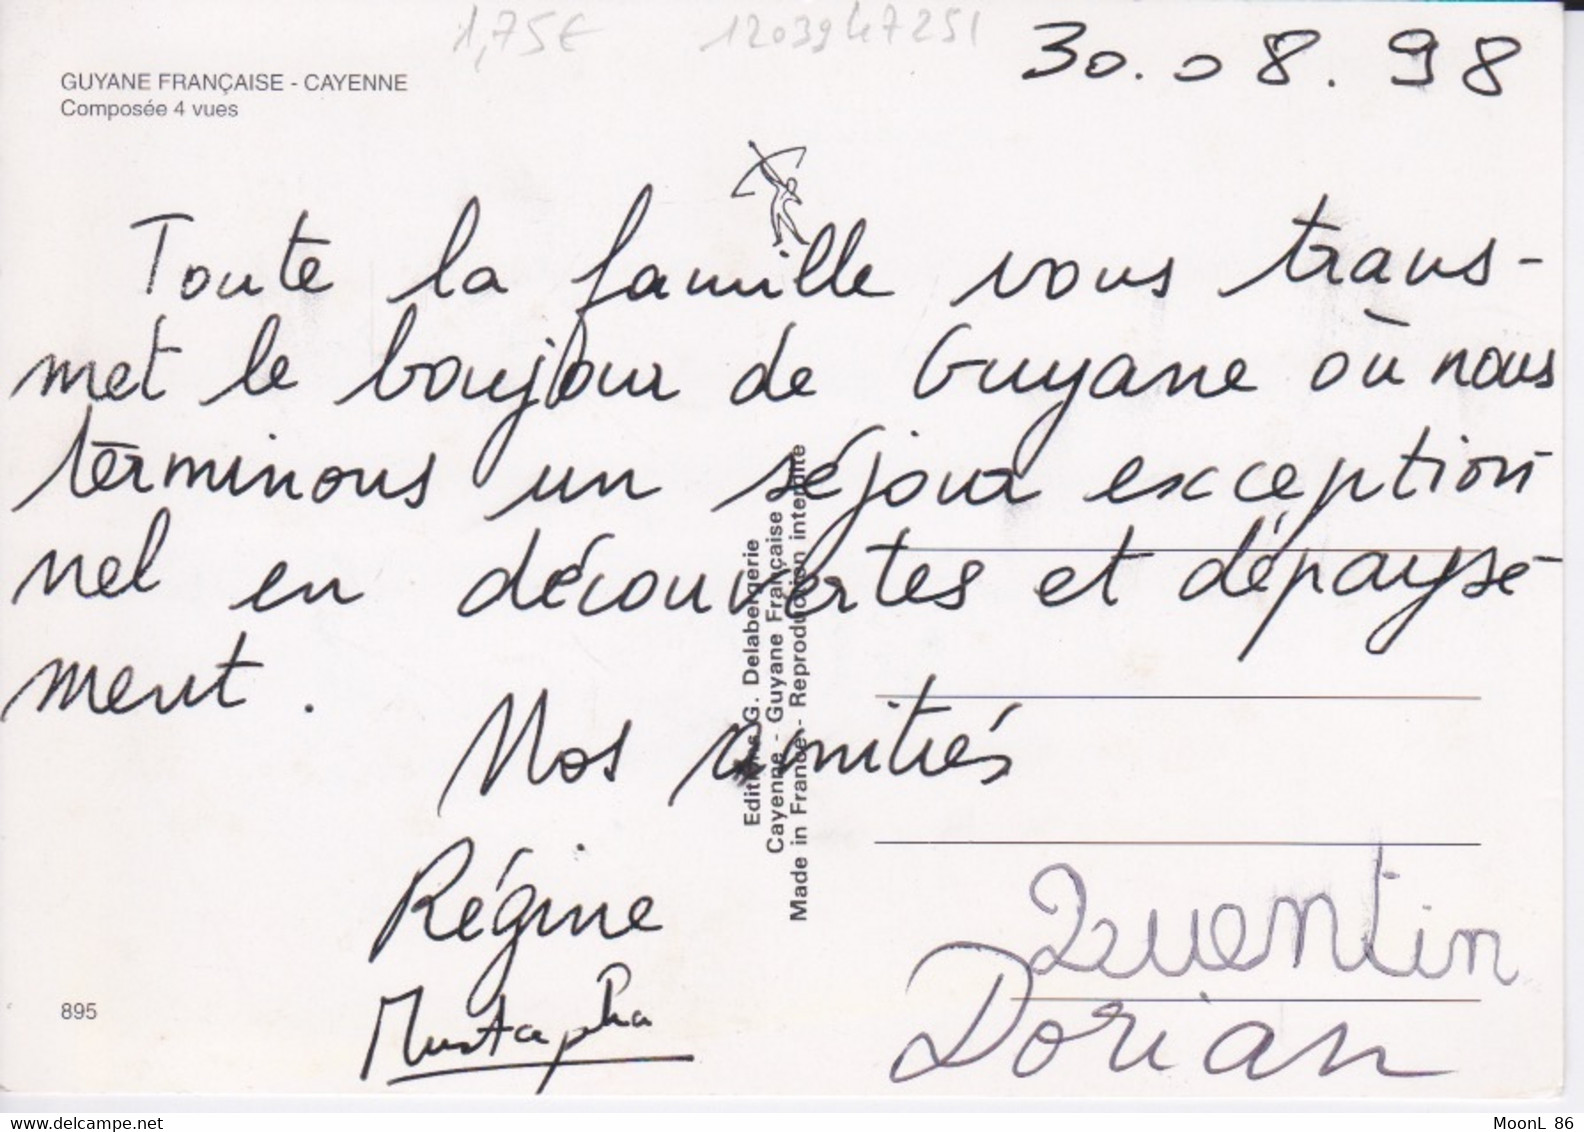 1,75€ 1203947251
30.08.98
GUYANE FRANÇAISE - CAYENNE
Composée 4 vues
Toute la famille vous trans-
met le boujour de Guyane où nous
terminons un séjour exception
nel en découvertes et dépayse-
ment.
Nos amitiés
Editions G. Delabergerie
Cayenne - Guyane Française
Made in France - Reproduction interdite
Régine
Mustapha
Quentin
Dorian
895
MoonL 86